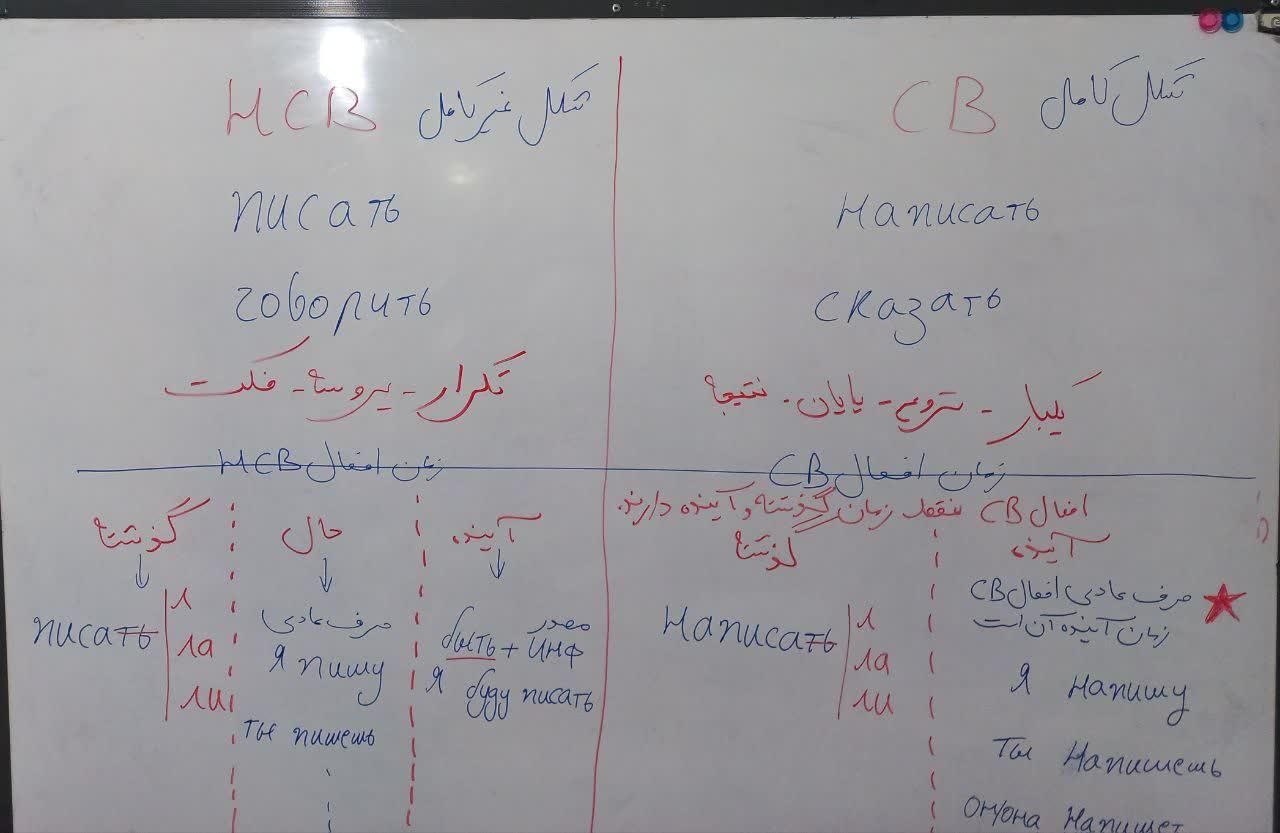 НСВ شکل غیر کامل
писать
говорить
تکرار - پروسه - فکت
زمان افعال НСВ
گذشته
писать
л
ла
ли
حال
صرف عادی
я пишу
ты пишешь
آینده
مصدر
быть + инф
я буду писать
СВ شکل کامل
написать
сказать
یکبار - شروع - پایان - نتیجه
زمان افعال СВ
افعال СВ فقط زمان گذشته و آینده دارند.
گذشته
написать
л
ла
ли
آینده
صرف عادی افعال СВ
زمان آینده آن است
я напишу
ты напишешь
он/она напишет